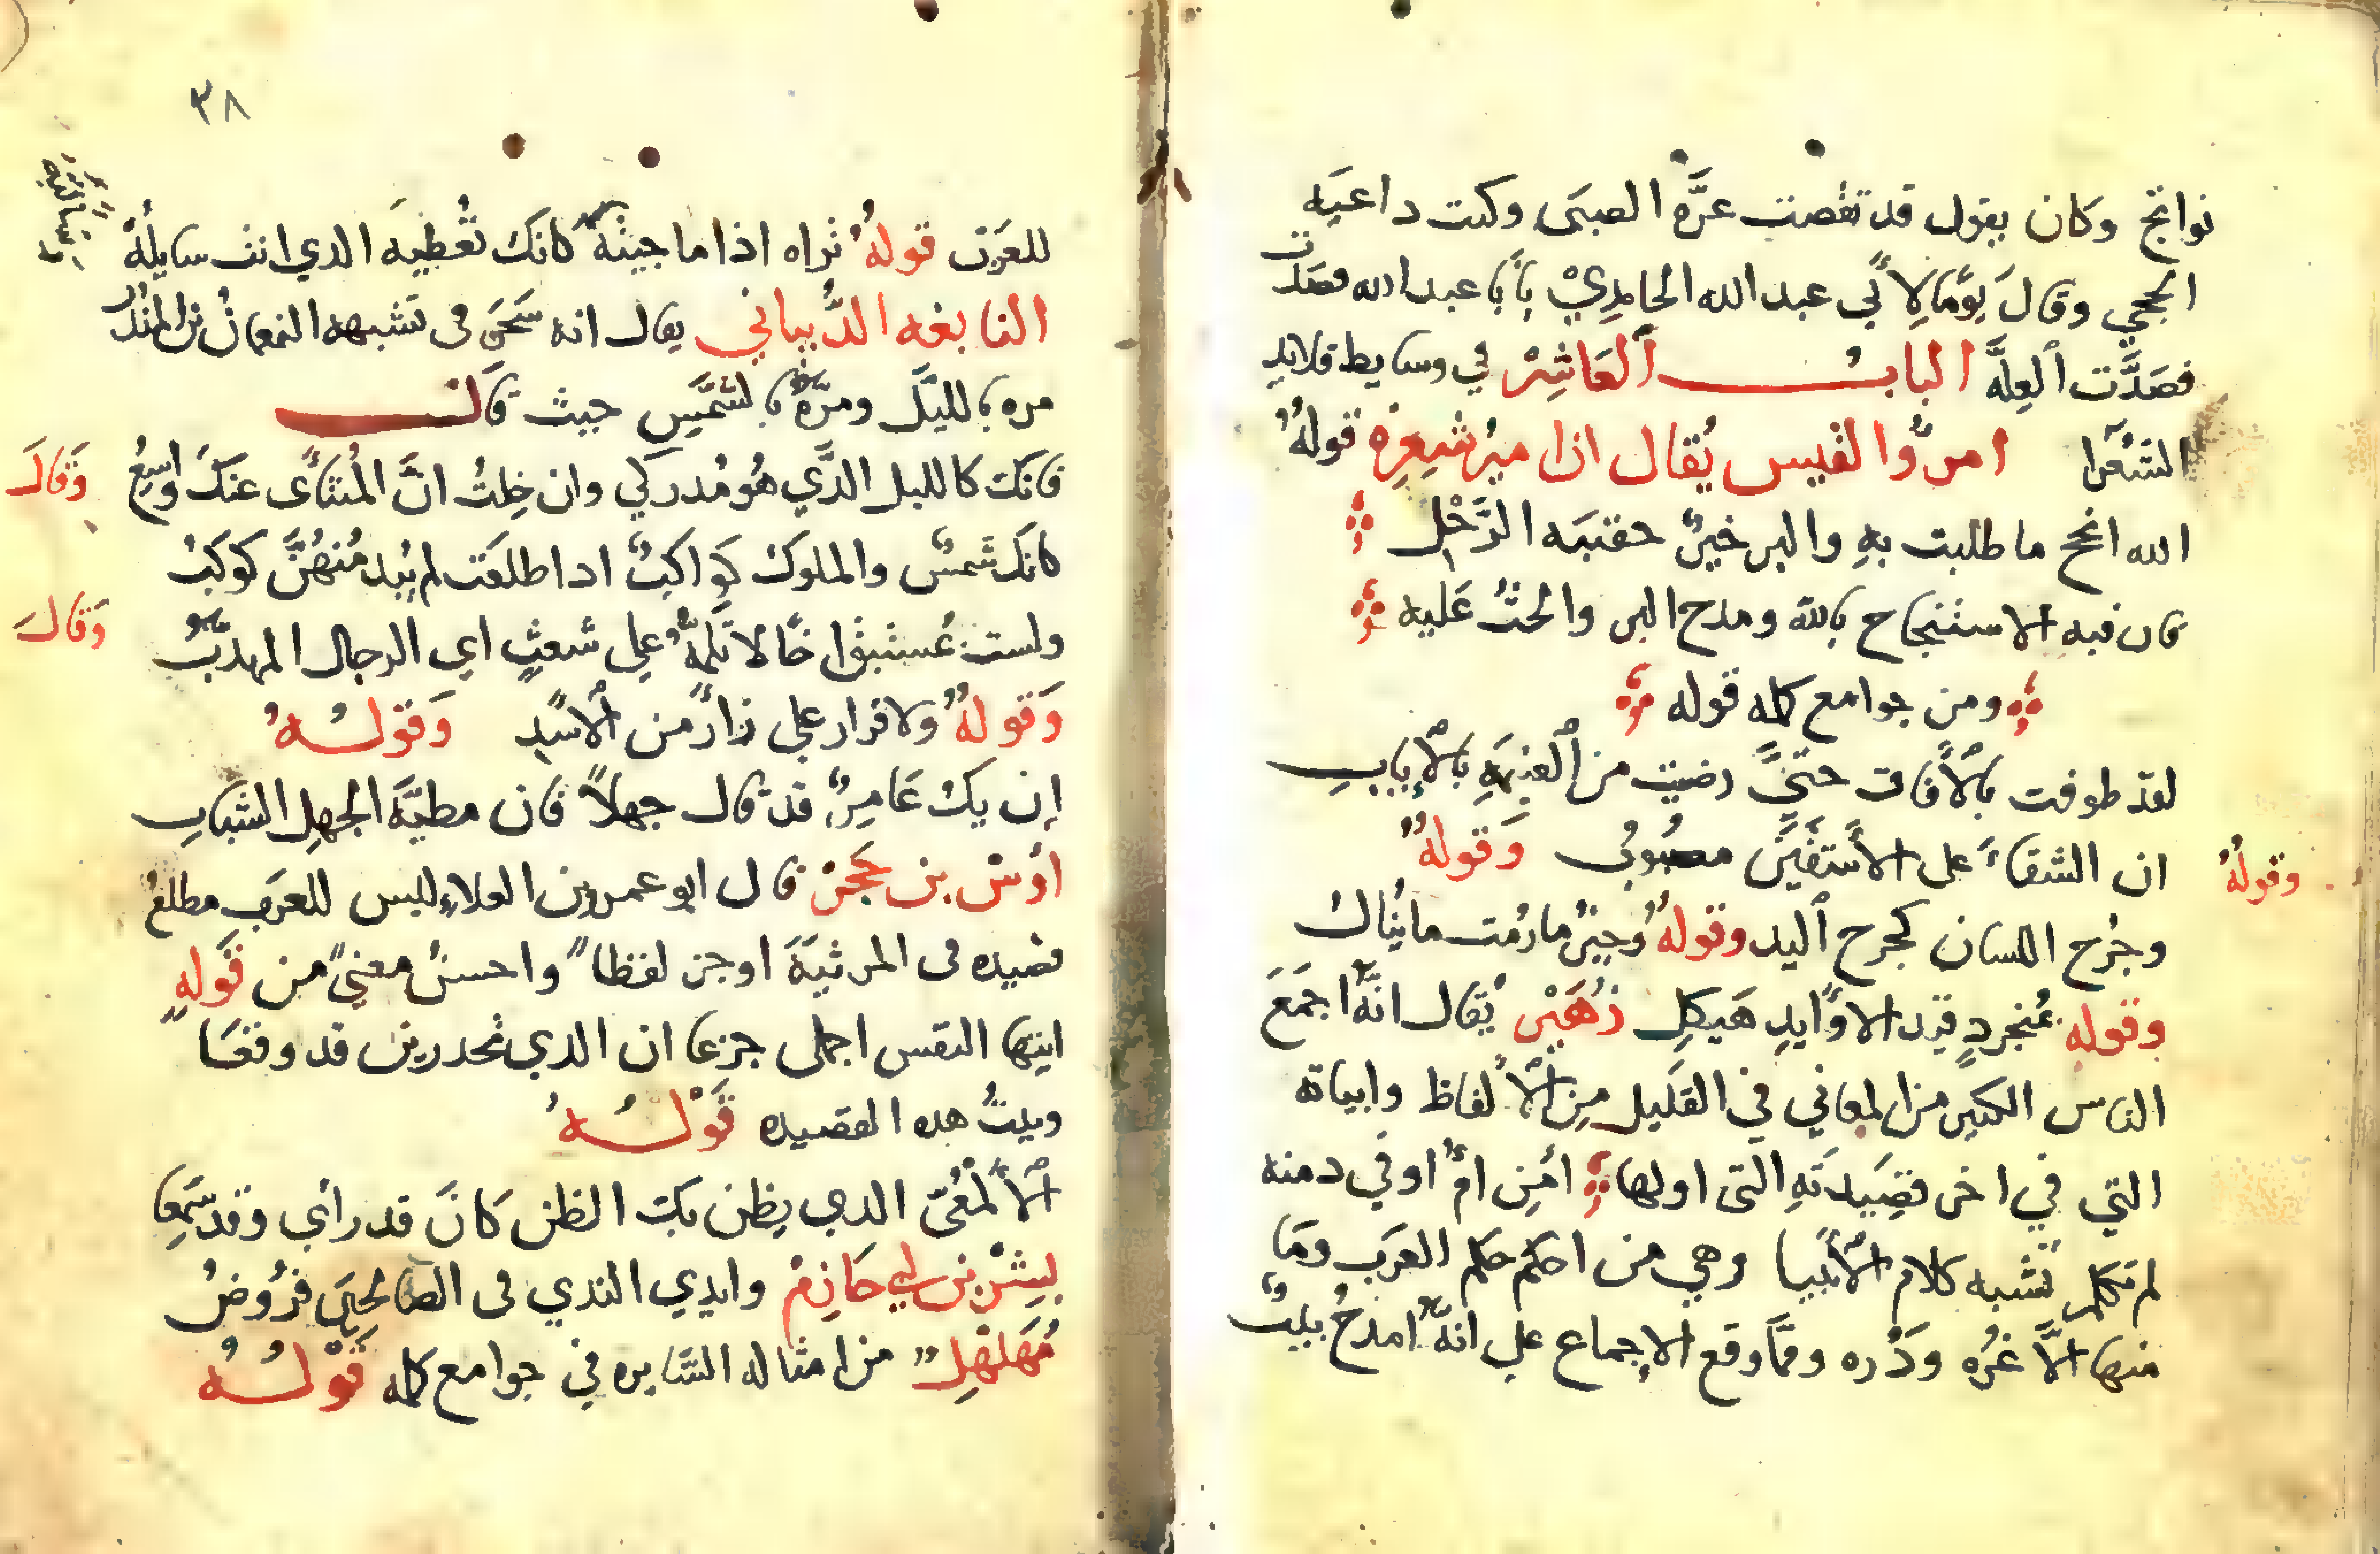 نواتج وكان يقول قد تقضت غرة الصبى وكنت داعيه
الحجى وقال يومًا لأبي عبد الله الحامدي يأبا عبد الله فصدت
فصَدَّت ٱلعِلَّه البابُ ٱلعَاشِرْ في وسايط قلايد
الشعرا امرؤ القيس يُقال ان اميرْ شِعِرْه قولهُ
الله انجح ما طلبت بهِ والبر خيرُ حقيبَه الرَّحْلِ
فان فيه الاستنجاح بالله ومدح البر والحثُ عَليه
ومن جوامع كلمه قوله
لقد طوفت بالأفاق حتي رضيت من ٱلغنيمَهِ بالإيابِ
وقولهُ
ان الشقاءَ على الأشقَيَن مصبُوبُ وَقولهُ
وجُرح اللسان كجرح ٱليد وقولهُ وُجيزُ ما رُمت ما يُناكُ
وقوله بمُنجردٍ قيد الاوَابدِ هَيكلِ زُهَيْر يُقال انهُ اجمَعَ
الناس الكثير من المعاني في القليل مِن ٱلألفاظ وابياته
التي في اخر قصَيِدَتهِ التى اولها أمِن امُ اوفي دمنه
لم تكلم تشبه كلام الأنبيا وهي من احكم حكم العرَب ومَا
منها الاَّ غرُه ودُره وممَّا وقع الإجماع على انهُ امدحُ بيت
٣٨
للعرَب قولهُ تراه اذا ما جيته كانَك تُعْطيَه الذي انت سايلُهُ
النابغه الدُّبياني يقال انه سَحَرَ في تشبيهه النعمانُ بن المنذُر
مره بالليَل ومرَّهُ بالشمَّسِ حيث قاَل
فانك كالليل الدَّي هُو مُدركي وان خِلتُ انَّ المُنتأى عنكَ واسِعُ
وَقالَ
كانك شمسُ والملوكَ كواكبُ ادا طلعَت لم يُبد مُنهُنَّ كوكبُ
وَقالَ
ولست بمُستبق اخًا لا تَلمهُ على شعثٍ اي الرجال المهدَّبُ
وَقولهُ ولا قرار على زأر من ٱلأسَدِ وَقولهُ
إن يكُ عَامِرُ قد قال جهلاً فان مطيَّهَ الجهلِ الشبابِ
اوْسْ بن حَجَرْ قال ابو عمرو بن العلاءِ ليس للعرَب مطلعُ
قصيده في المرثيَة اوجز لفظاً واحسنُ معنىً من قوَلهِ
ايتها النفس اجملى جزعا ان الدي تحدرين قد وقعَا
وبيتُ هده القصيده قَوْلهُ
ٱلألمْعَىّ الدي يظن بك الظن كانَ قد رأي وقد سَمِعا
بِشْر بن ابي حَازِمْ وايدي الندي في الصالحيَن قرُوضُ
مُهَلهْلِ من امثاله السَّايره في جوامع كلمه قَوْلهُ